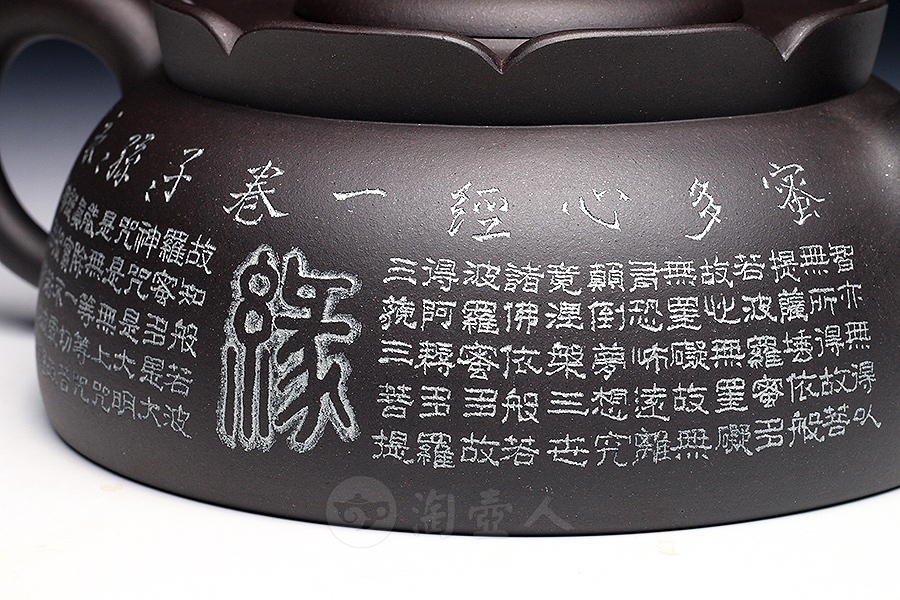 蜜多心經一卷子
智亦無得以
無所得故菩
提薩埵依般
若波羅蜜多
故心無罣礙
無罣礙故無
有恐怖遠離
顛倒夢想究
竟涅槃三世
諸佛依般若
波羅蜜多故
得阿耨多羅
三藐三菩提
緣
故知般若波
羅蜜多是大
神咒是大明
咒是無上咒
是無等等咒
能除一切苦
淘壺人